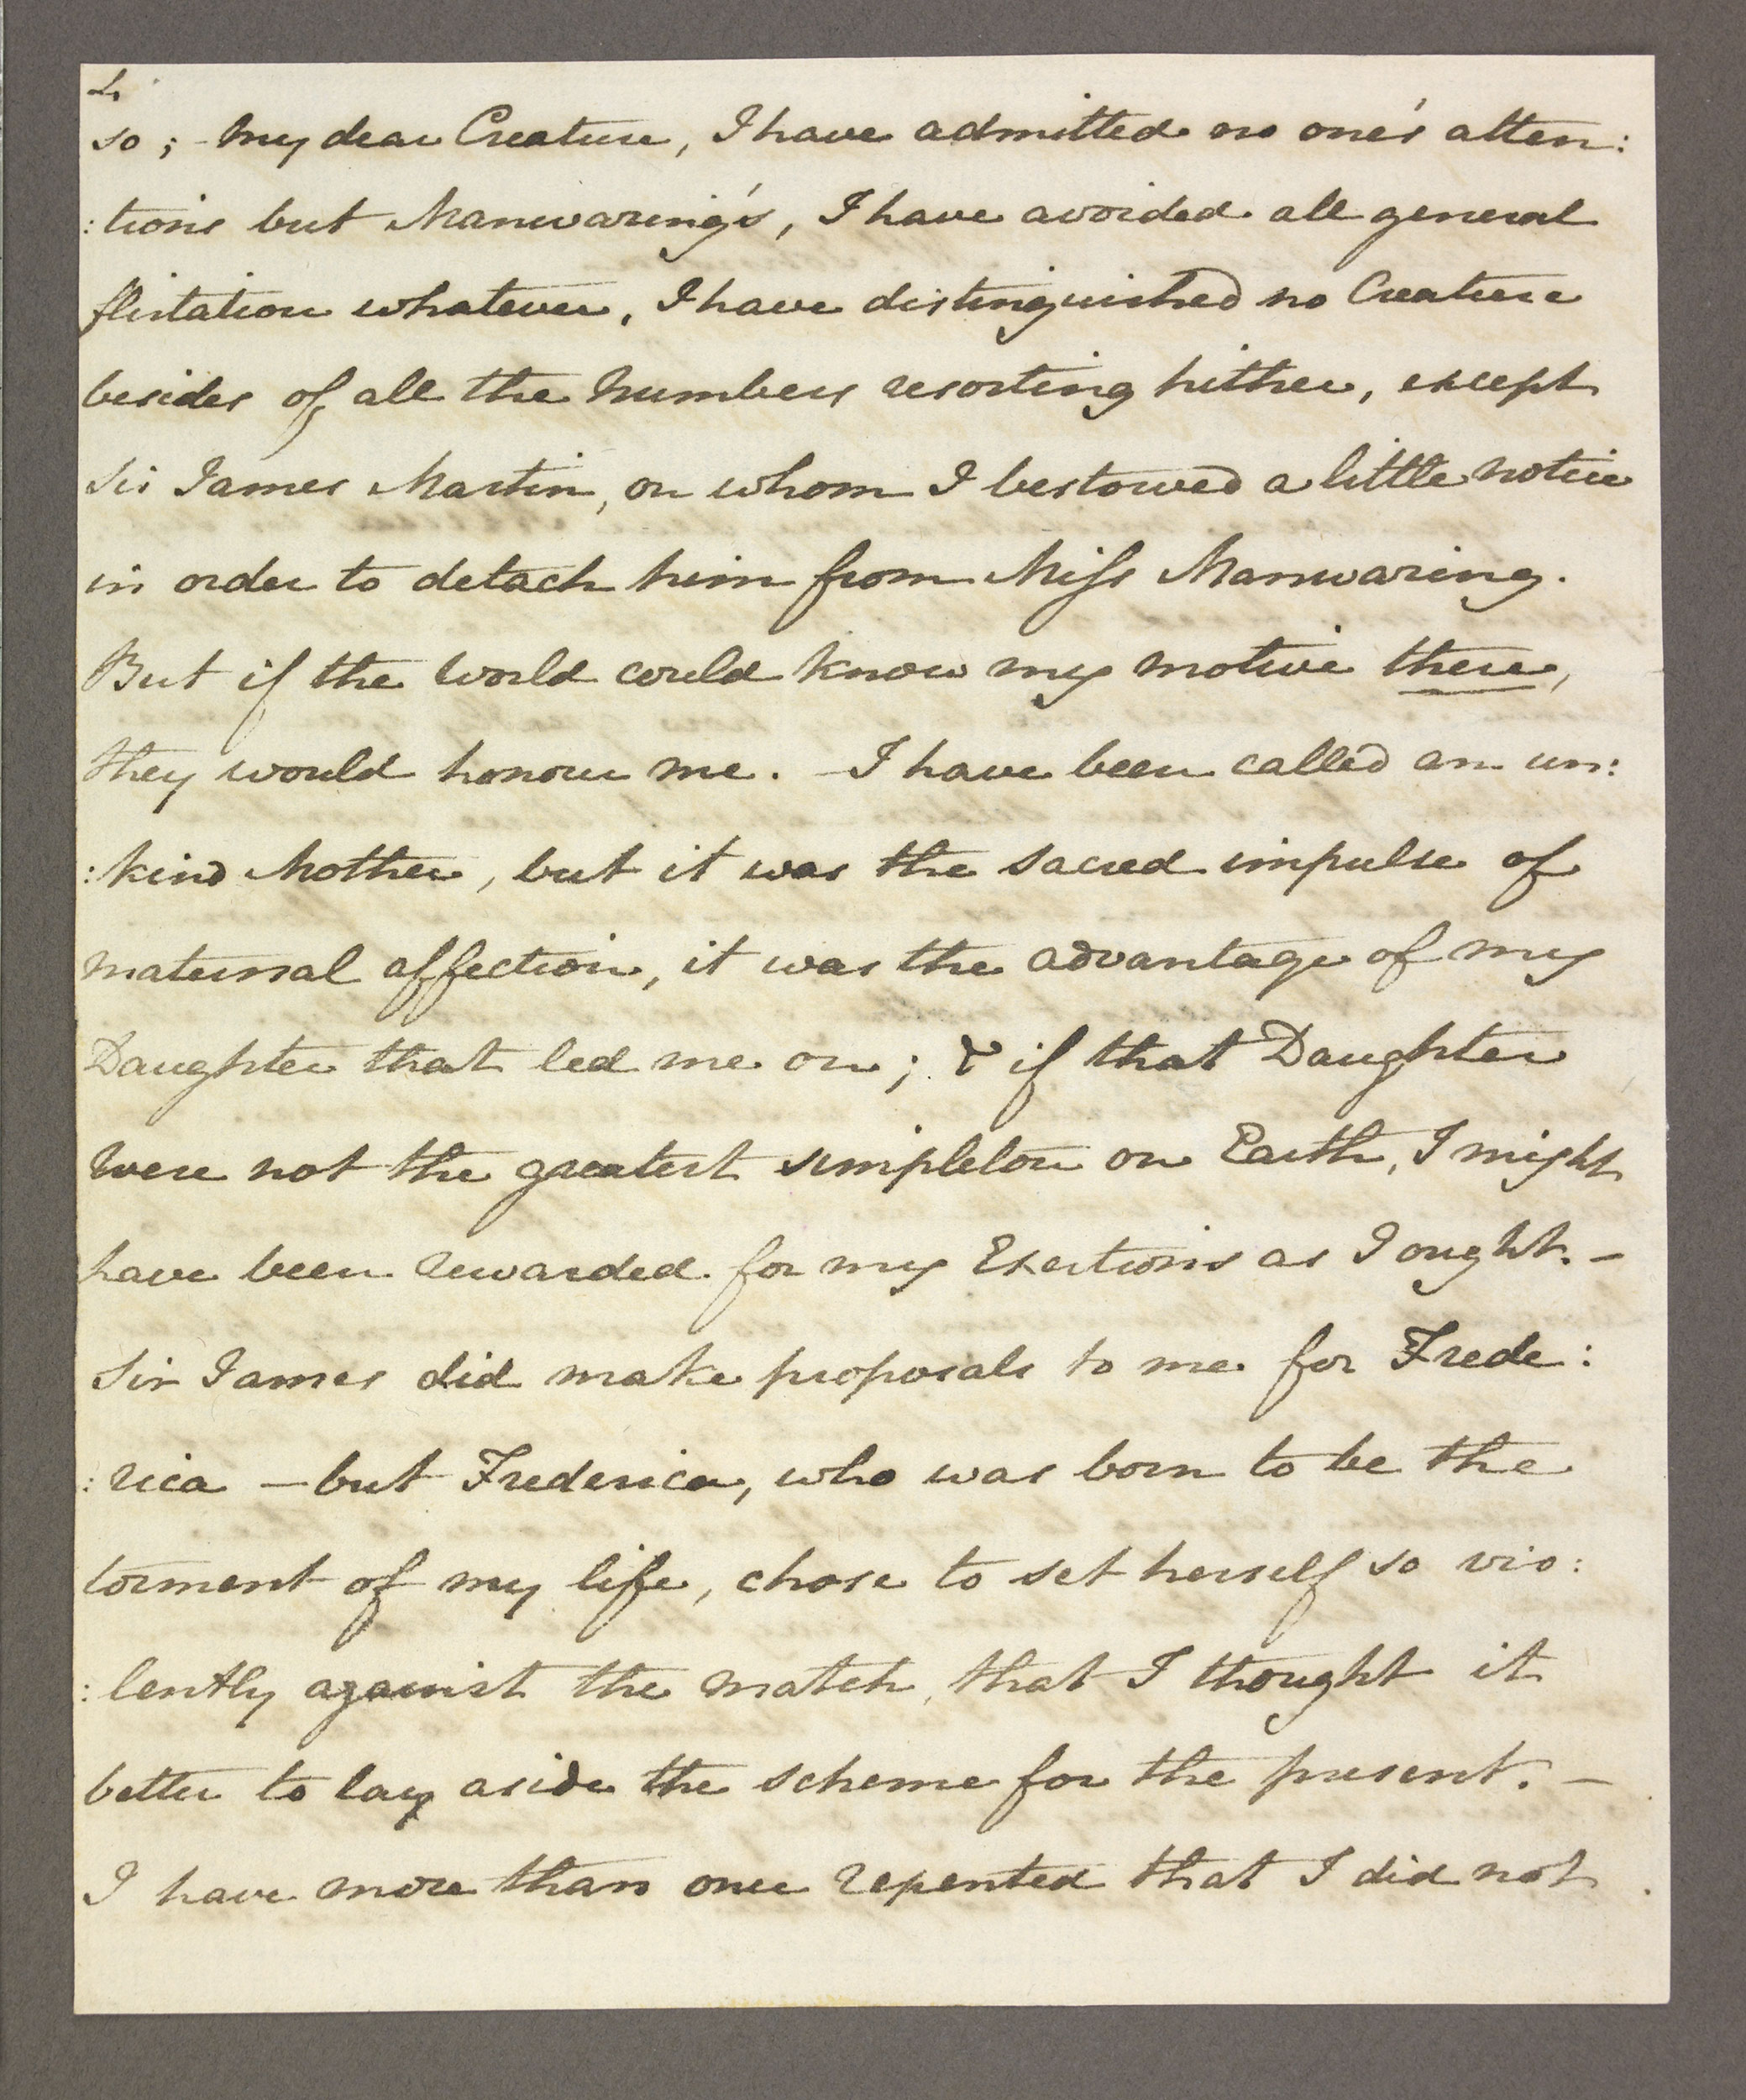 4
so; - My dear Creature, I have admitted no one's atten:
:tions but Manwaring's, I have avoided all general
flirtation whatever, I have distinguished no Creature
besides of all the Numbers resorting hither, except
Sir James Martin, on whom I bestowed a little notice
in order to detach him from Miss Manwaring.
But if the World could know my motive there,
they would honour me. - I have been called an un:
:kind Mother, but it was the sacred impulse of
maternal affection, it was the advantage of my
Daughter that led me on; & if that Daughter
were not the greatest simpleton on Earth, I might
have been rewarded for my Exertions as I ought. -
Sir James did make proposals to me for Frede:
:rica - but Frederica, who was born to be the
torment of my life, chose to set herself so vio:
:lently against the match, that I thought it
better to lay aside the scheme for the present. -
I have more than once repented that I did not